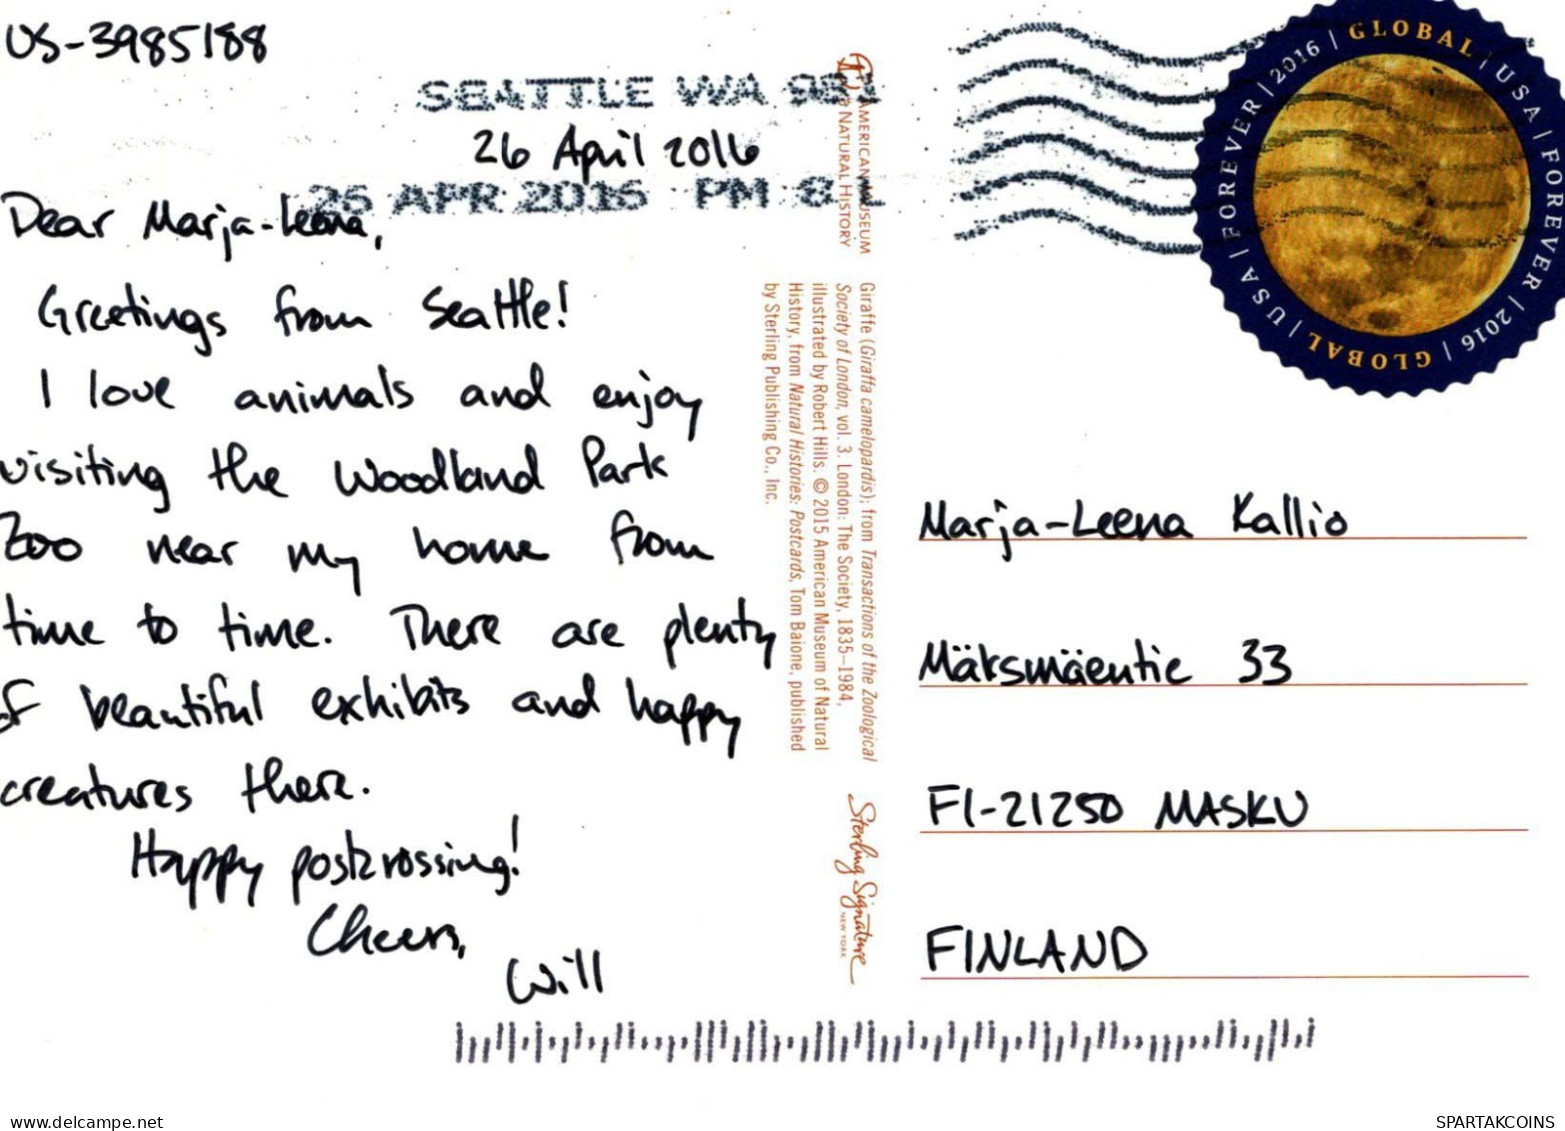 US-3985188
SEATTLE WA 981
26 April 2016
26 APR 2016 PM 8 L
Dear Marja-Leena,
Greetings from Seattle!
I love animals and enjoy
visiting the Woodland Park
Zoo near my home from
time to time. There are plenty
of beautiful exhibits and happy
creatures there.
Happy postcrossing!
Cheers,
Will
AMERICAN MUSEUM
& NATURAL HISTORY
Giraffe (Giraffa camelopardis); from Transactions of the Zoological
Society of London, vol. 3. London: The Society, 1835–1984,
illustrated by Robert Hills. © 2015 American Museum of Natural
History, from Natural Histories: Postcards, Tom Baione, published
by Sterling Publishing Co., Inc.
Sterling Signature
NEW YORK
GLOBAL | USA | FOREVER | 2016 | GLOBAL | USA | FOREVER | 2016 |
Marja-Leena Kallio
Mäksmäentie 33
FI-21250 MASKU
FINLAND
www.delcampe.net
SPARTAKCOINS